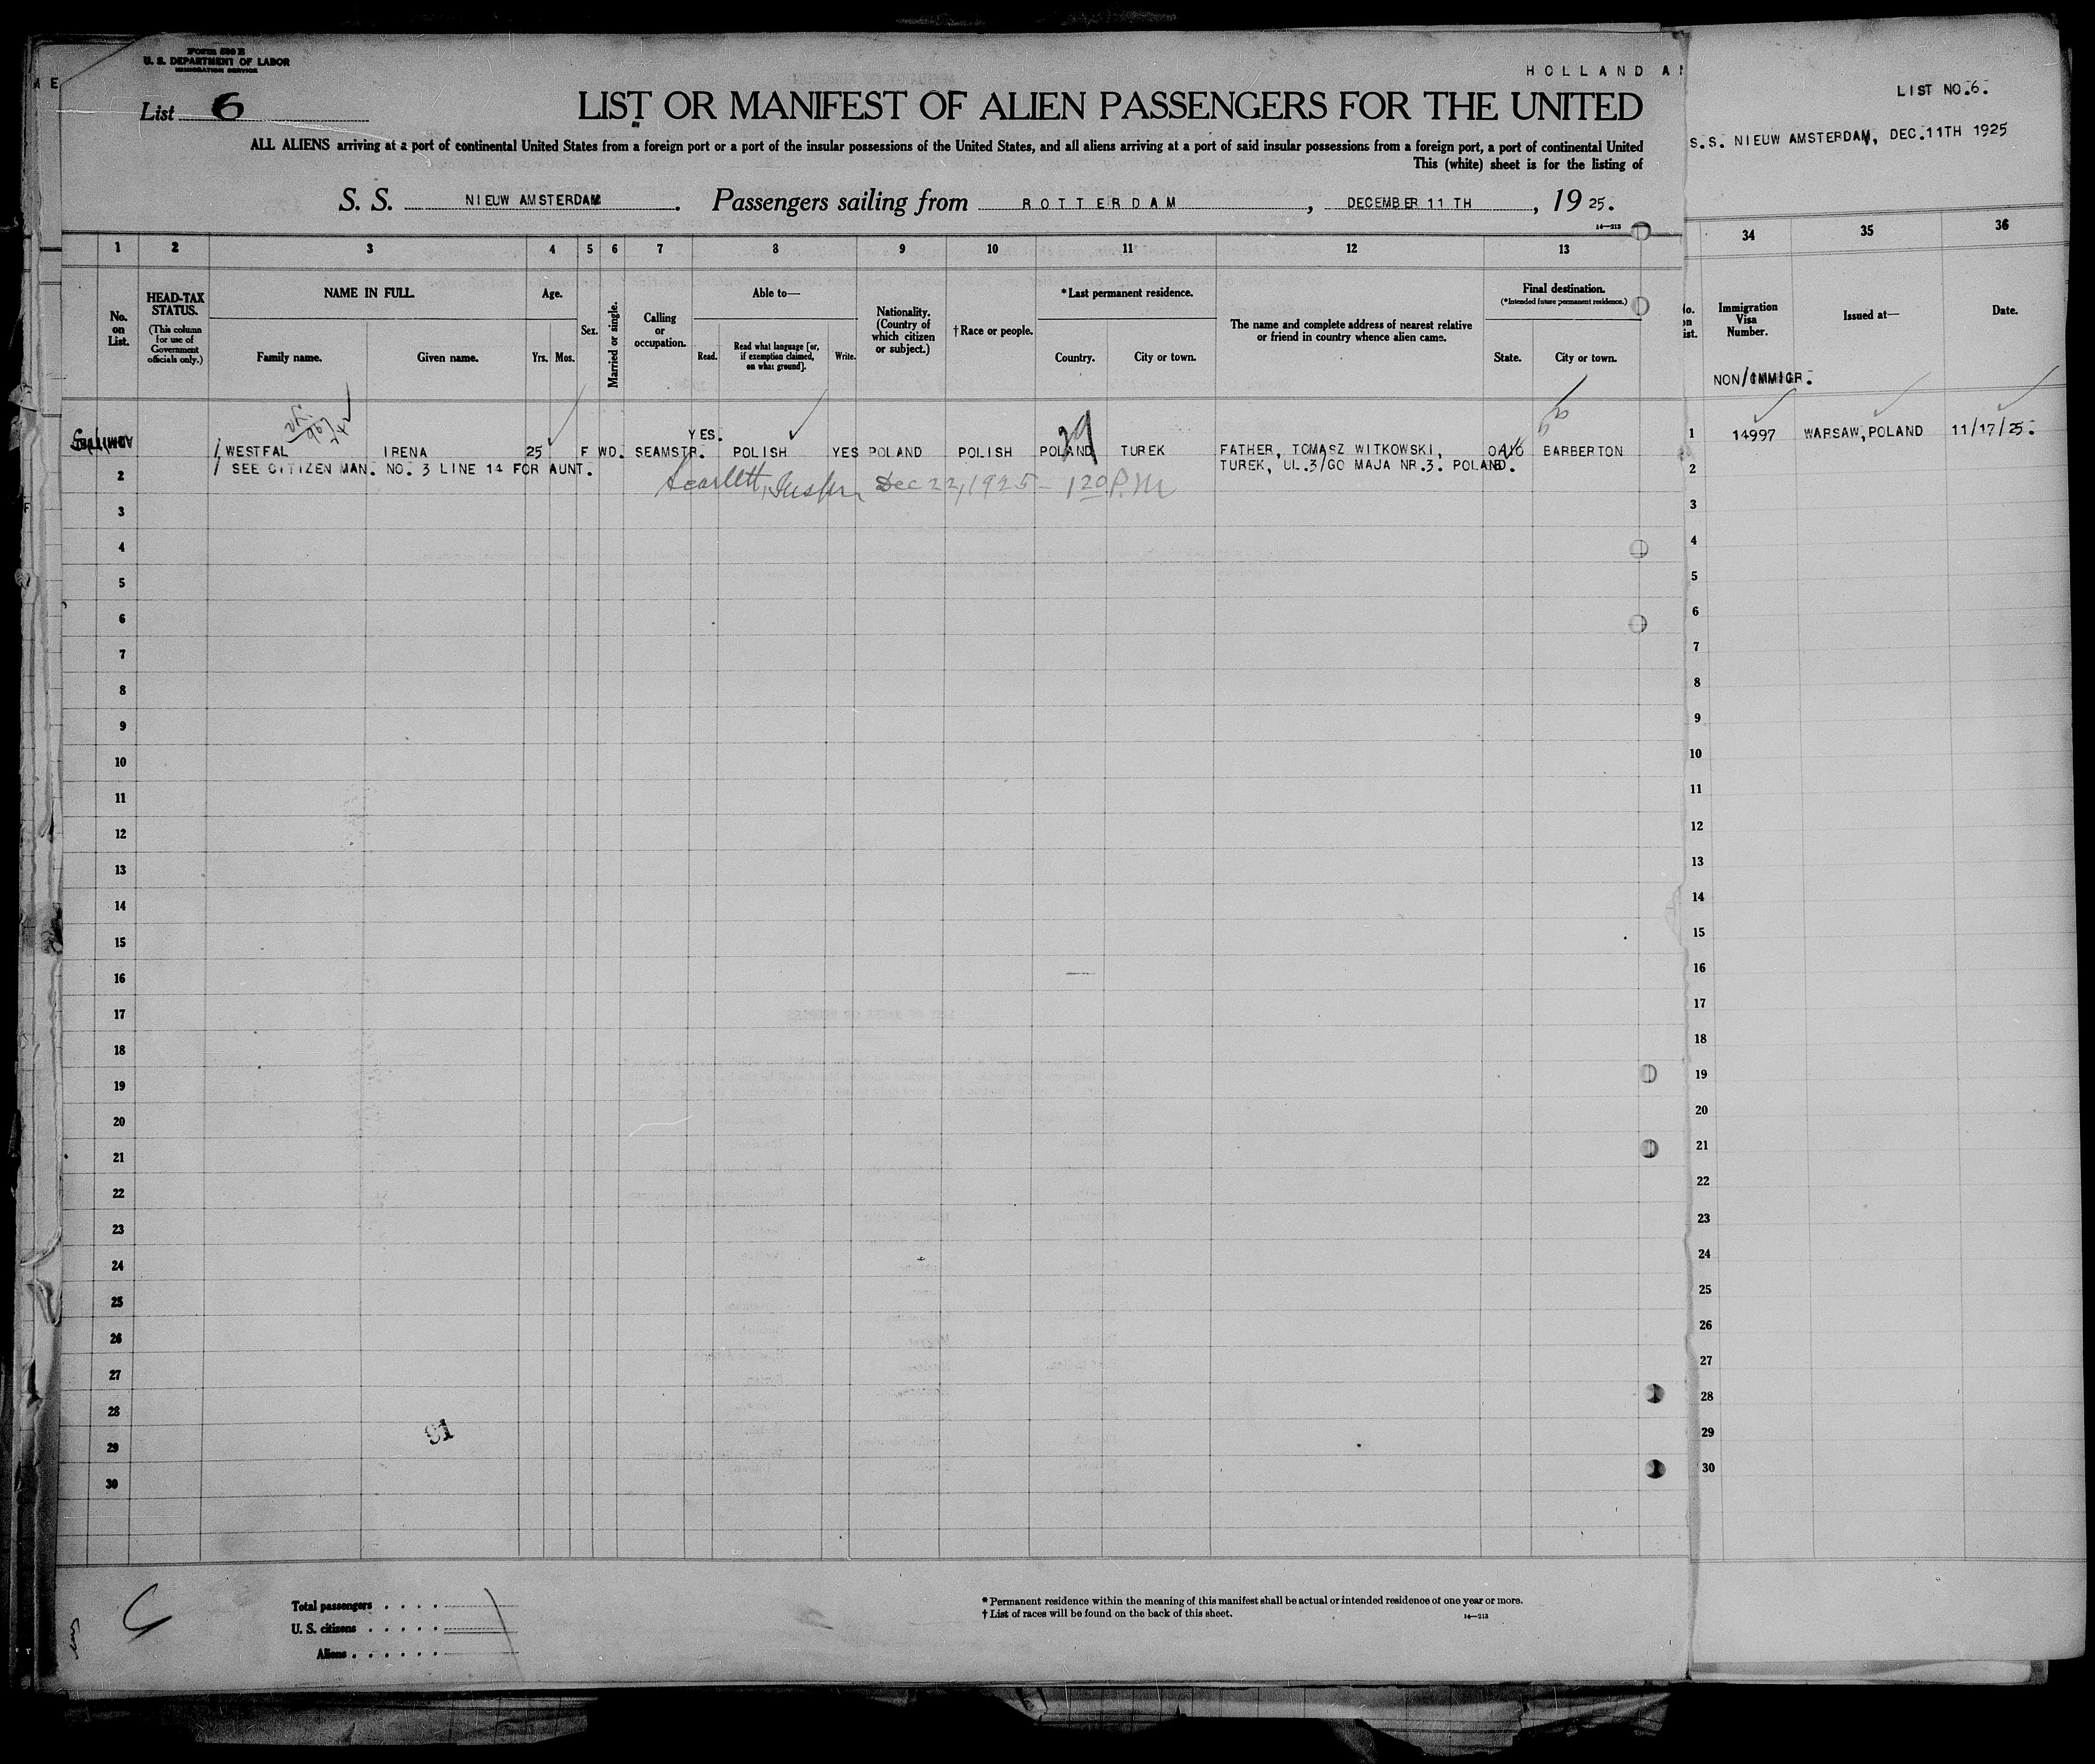 Form 500 B
U. S. DEPARTMENT OF LABOR
IMMIGRATION SERVICE
HOLLAND A
List 6
LIST OR MANIFEST OF ALIEN PASSENGERS FOR THE UNITED
ALL ALIENS arriving at a port of continental United States from a foreign port or a port of the insular possessions of the United States, and all aliens arriving at a port of said insular possessions from a foreign port, a port of continental United
This (white) sheet is for the listing of
S. S. NIEUW AMSTERDAM. Passengers sailing from ROTTERDAM, DECEMBER 11 TH, 19 25.
14—213
1 2 3 4 5 6 7 8 9 10 11 12 13
No. on List.
HEAD-TAX STATUS.
(This column for use of Government officials only.)
NAME IN FULL.
Family name.
Given name.
Age.
Yrs. Mos.
Sex.
Married or single.
Calling or occupation.
Able to—
Read.
Read what language [or, if exemption claimed, on what ground].
Write.
Nationality. (Country of which citizen or subject.)
†Race or people.
*Last permanent residence.
Country.
City or town.
The name and complete address of nearest relative or friend in country whence alien came.
Final destination.
(*Intended future permanent residence.)
State.
City or town.
ADMITTED
YES.
WESTFAL IRENA 25 F WD. SEAMSTR. POLISH YES POLAND POLISH POLAND TUREK FATHER, TOMASZ WITKOWSKI, OHIO BARBERTON
SEE CITIZEN MAN. NO. 3 LINE 14 FOR AUNT. TUREK, UL.3/GO MAJA NR.3. POLAND.
Scarlett, Inspr. Dec 22, 1925 - 1 20 P.M
2
3
4
5
6
7
8
9
10
11
12
13
14
15
16
17
18
19
20
21
22
23
24
25
26
27
28
29
30
91
Total passengers
U. S. citizens
Aliens
* Permanent residence within the meaning of this manifest shall be actual or intended residence of one year or more.
† List of races will be found on the back of this sheet.
14—213
LIST NO.6.
S.S. NIEUW AMSTERDAM, DEC.11TH 1925
34 35 36
Immigration Visa Number.
Issued at—
Date.
NON/IMMIGR.
1 14997 WARSAW, POLAND 11/17/25.
2
3
4
5
6
7
8
9
10
11
12
13
14
15
16
17
18
19
20
21
22
23
24
25
26
27
28
29
30